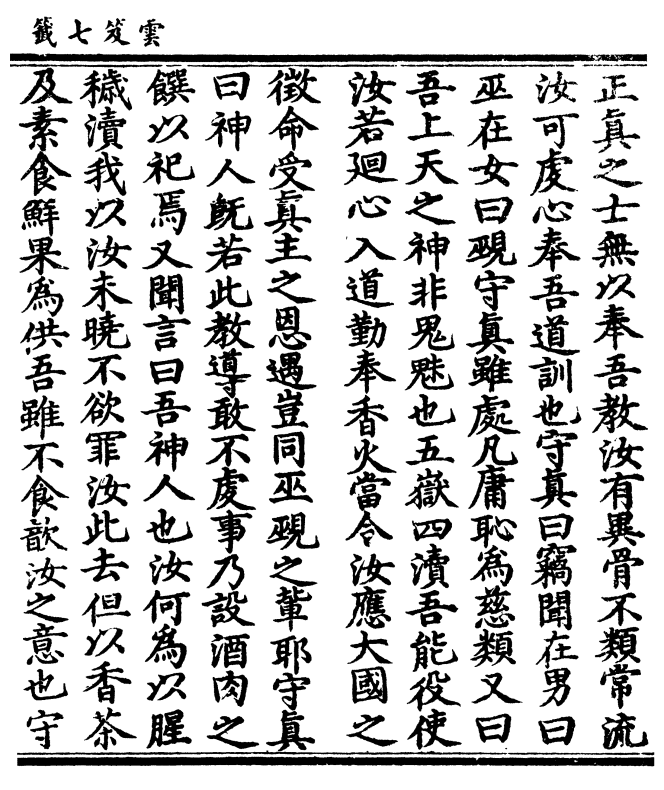 雲笈七籤
正眞之士無以奉吾教汝有異骨不類常流
汝可虔心奉吾道訓也守眞曰竊聞在男曰
巫在女曰覡守眞雖處凡庸恥為慈類又曰
吾上天之神非鬼魅也五嶽四瀆吾能役使
汝若廻心入道勤奉香火當令汝應大國之
徵命受眞主之恩遇豈同巫覡之輩耶守眞
曰神人旣若此教導敢不虔事乃設酒肉之
饌以祀焉又聞言曰吾神人也汝何為以腥
穢瀆我以汝未曉不欲罪汝此去但以香茶
及素食鮮果為供吾雖不食歆汝之意也守